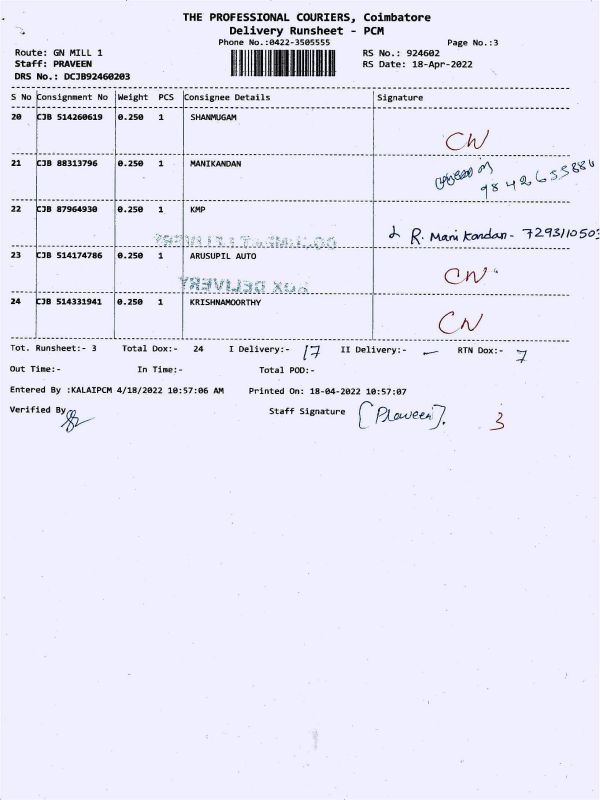 THE PROFESSIONAL COURIERS, Coimbatore
Delivery Runsheet - PCM
Phone No.:0422-3505555 Page No.:3
Route: GN MILL 1 RS No.: 924602
Staff: PRAVEEN RS Date: 18-Apr-2022
DRS No.: DCJB92460203
S No Consignment No Weight PCS Consignee Details Signature
20 CJB 514260619 0.250 1 SHANMUGAM CN
21 CJB 88313796 0.250 1 MANIKANDAN
22 CJB 87964930 0.250 1 KMP R. Mani Kandan - 7293110503
23 CJB 514174786 0.250 1 ARUSUPIL AUTO CN
24 CJB 514331941 0.250 1 KRISHNAMOORTHY CN
Tot. Runsheet:- 3 Total Dox:- 24 I Delivery:- 17 II Delivery:- — RTN Dox:- 7
Out Time:- In Time:- Total POD:-
Entered By :KALAIPCM 4/18/2022 10:57:06 AM Printed On: 18-04-2022 10:57:07
Verified By Staff Signature [Praveen]. 3